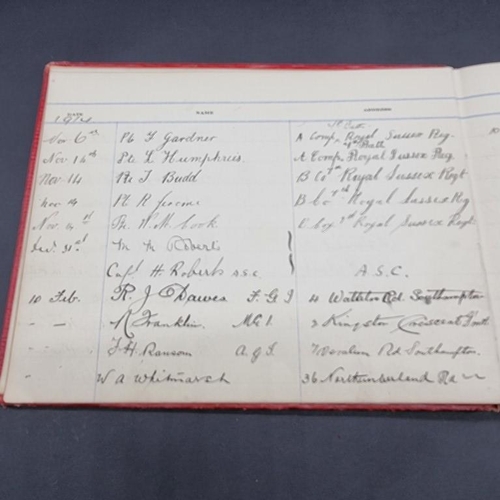 DATE NAME ADDRESS
1914
Nov 6th Pte F Gardner A Comp. Royal Sussex Reg.
Nov 14th Pte L Humphris A Comp. Royal Sussex Reg.
Nov. 14 Pte T Budd B Coy Royal Sussex Regt
Nov. 14 Pt R Jerome B Co Royal Sussex Rg
Nov. Pte. W. M. Cook Royal Sussex Regt
Dec. 31st M Roberts
Capt H Roberts A.S.C. A.S.C.
10 Feb. R. J Dawes F.G.I 4 Rd Southampton
- - R Franklin. M.G.I. 2 Kingston Crescent
J H Ransom A.G.I. Rd Southampton.
W A Whitmarsh 36 Northumberland Rd